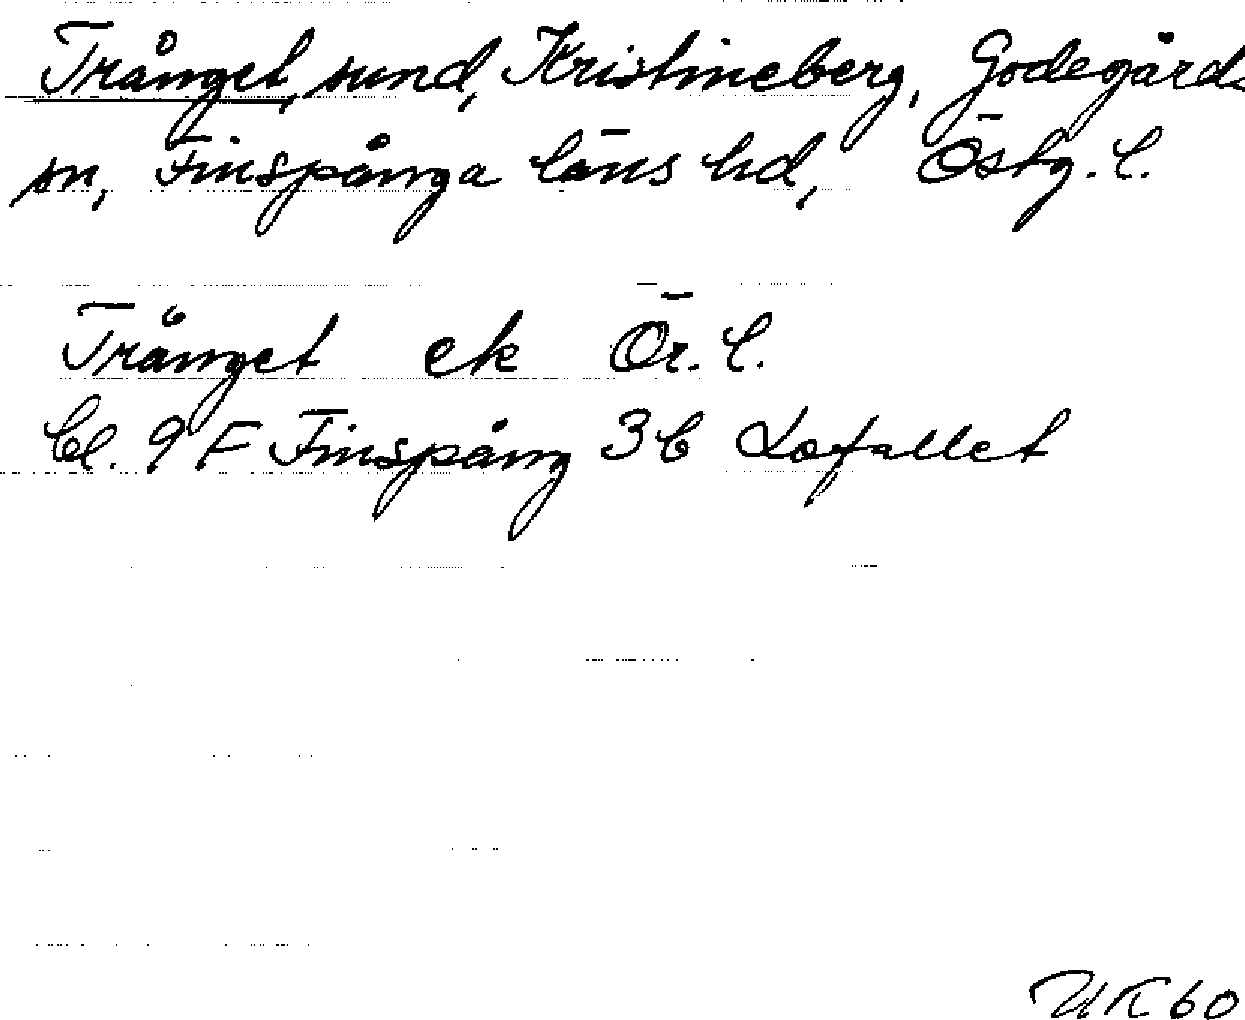 Trånget, sund, Kristineberg, Godegårds
sn, Finspånga läns hd, Östg. l.
Trånget ek Ör. l.
bl. 9 F Finspång 3b Lofallet
UK 60